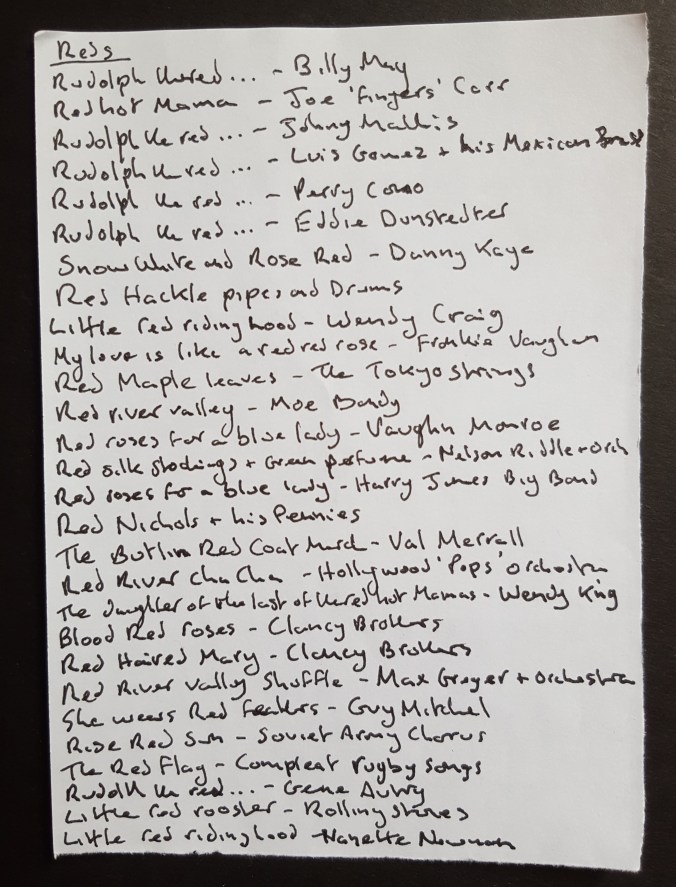 Reds
Rudolph the red ... - Billy May
Red hot Mama - Joe 'Fingers' Carr
Rudolph the red ... - Johny Mathis
Rudolph the red ... - Luis Gomez + his Mexican Brass
Rudolph the red ... - Perry Como
Rudolph the red ... - Eddie Dunstedter
Snow White and Rose Red - Danny Kaye
Red Hackle pipes and Drums
Little red riding hood - Wendy Craig
My love is like a red red rose - Frankie Vaughan
Red Maple leaves - The Tokyo strings
Red river valley - Moe Bandy
Red roses for a blue lady - Vaughn Monroe
Red silk stockings + Green perfume - Nelson Riddle + orch
Red roses for a blue lady - Harry James Big Band
Red Nichols + his Pennies
The Butlin Red Coat March - Val Merrall
Red River Cha Cha - Hollywood 'Pops' orchestra
The daughter of the last of the red hot Mamas - Wendy King
Blood Red roses - Clancy Brothers
Red Haired Mary - Clancy Brothers
Red River Valley Shuffle - Max Greger + orchestra
She wears Red Feathers - Guy Mitchel
Rise Red Sun - Soviet Army Chorus
The Red Flag - Compleat rugby songs
Rudolth the red ... - Gene Autry
Little red rooster - Rolling stones
Little red riding hood - Nanette Newman